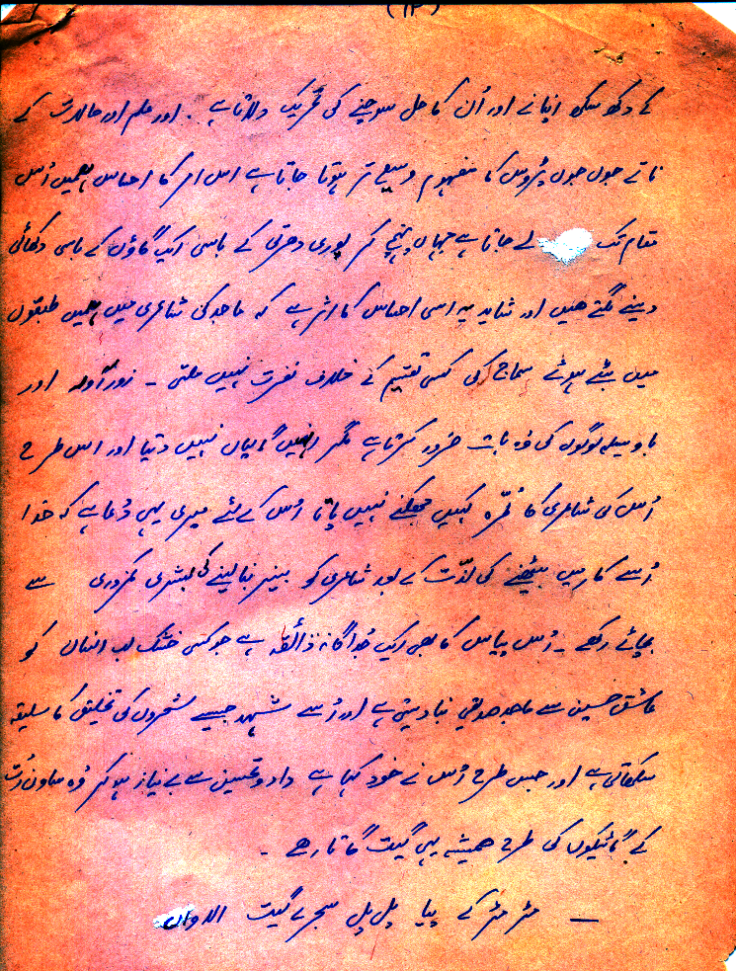 (۱۳)
کے دکھ سکھ اپنانے اور اُن کا حل سوچنے کی تحریک دلاتا ہے ۔ اور علم اور حالات کے
ناتے جوں جوں پڑوس کا مفہوم وسیع تر ہوتا جاتا ہے اس امر کا احساس ہمیں اُس
مقام تک لے جاتا ہے جہاں پہنچ کر پوری دھرتی کے باسی ایک گاؤں کے باسی دکھائی
دینے لگتے ھیں اور شاید یہ اسی احساس کا اثر ہے کہ ماجد کی شاعری میں ہمیں طبقوں
میں بٹے ہوئے سماج کی کسی تقسیم کے خلاف نفرت نہیں ملتی ۔ زورآور اور
باوسیلہ لوگوں کی وُہ بات ضرور کرتا ہے مگر انہیں گالیاں نہیں دیتا اور اس طرح
اُس کی شاعری کا کہیں نہیں پاتا اُس کے لئے میری یہی دُعا ہے کہ خدا
اُسے کار میں بیٹھنے کی لذّت کے بعد شاعری کو بینر بنا لینے کی بشری کمزوری سے
بچائے رکھے ۔ اُس پیاس کا بھی ایک جُداگانہ ذائقہ ہے جو کسی خشک لب انسان کو
عاشق حسین سے ماجد صدیقی بنا دیتی ہے اور اُسے شہد جیسے شعروں کی تخلیق کا سلیقہ
سکھاتی ہے اور جس طرح اُس نے خود کہا ہے داد و تحسین سے بے نیاز ہو کر وُہ ساون رُت
کے گائیکوں کی طرح ھمیشہ یہی گیت گاتا رھے ۔
— مڑ مڑ کے پیا پل پل سجرے گیت الاواں